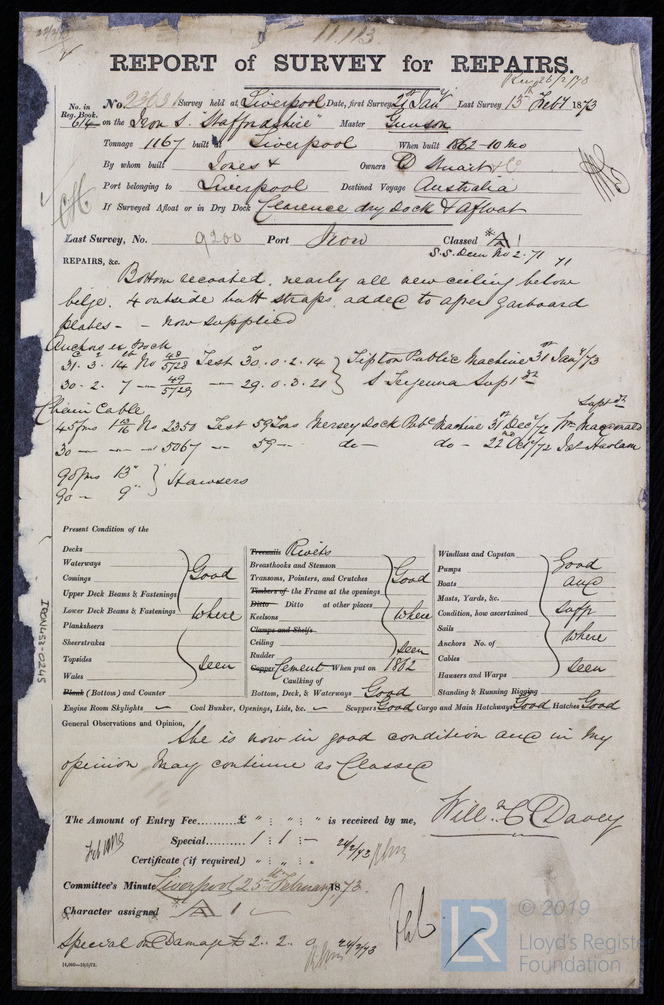 11.113
REPORT of SURVEY for REPAIRS.
No. in Reg. Book. 614
No. Survey held at Liverpool Date, first Survey 21st Jany Last Survey 15th Feby 1873
on the Iron S. "Staffordshire" Master
Tonnage 1167 built at Liverpool When built 1862-10 mo
By whom built Jones & Owners Stuart & C
Port belonging to Liverpool Destined Voyage Australia
If Surveyed Afloat or in Dry Dock Clarence dry Dock & Afloat
Last Survey, No. 9200 Port Iron Classed *A 1
S.S. Liv No 2.71 71
REPAIRS, &c.
Bottom recoated, nearly all new ceiling below
bilge. 4 outside butt straps added to after garboard
plates - - now supplied
Anchors ex Stock
31. 3. 14 No 48/5728 Test 30. 0. 2. 14 } Tipton Public Machine 31st Jany/73
30. 2. 7 — 49/5729 — 29. 0. 3. 21 } Supt
Chain Cable Supt
45 fms 1 13/16 No 2350 Test 59 Tons Mersey Dock Pubc Machine 31st Decr/72 Wm Macdonald
30 — — — 5067 — 59 — do — do - 22nd Oct/72 Haslam
90 fms 13"
90 — 9" } Hawsers
Present Condition of the
Decks
Waterways
Comings
Upper Deck Beams & Fastenings
Lower Deck Beams & Fastenings
Planksheers
Sheerstrakes
Topsides
Wales
Good
where
seen
Plank (Bottom) and Counter
Treenails Rivets
Breasthooks and Stemson
Transoms, Pointers, and Crutches
Timbers of the Frame at the openings
Ditto Ditto at other places
Keelsons
Clamps and Shelfs
Ceiling
Rudder
Good
where
seen
Copper Cement When put on 1862
Caulking of
Bottom, Deck, & Waterways Good
Windlass and Capstan
Pumps
Boats
Masts, Yards, &c.
Condition, how ascertained
Sails
Anchors No. of
Cables
Hawsers and Warps
Good
and
suff
where
seen
Standing & Running Rigging
Engine Room Skylights — Coal Bunker, Openings, Lids, &c. — Scuppers Good Cargo and Main Hatchways Good Hatches Good
General Observations and Opinion,
She is now in good condition and in my
opinion may continue as Classed
The Amount of Entry Fee.........£ " : " : " is received by me,
Will. C Davey
Special.......... 1 : 1 : — 24/2/73
Certificate (if required) " : " : "
Committee's Minute Liverpool 25th February 1873.
Character assigned *A 1
Special on Damage £ 2.. 2. 0 24/2/73
IRON453-0245
LR
© 2019
Lloyd's Register
Foundation